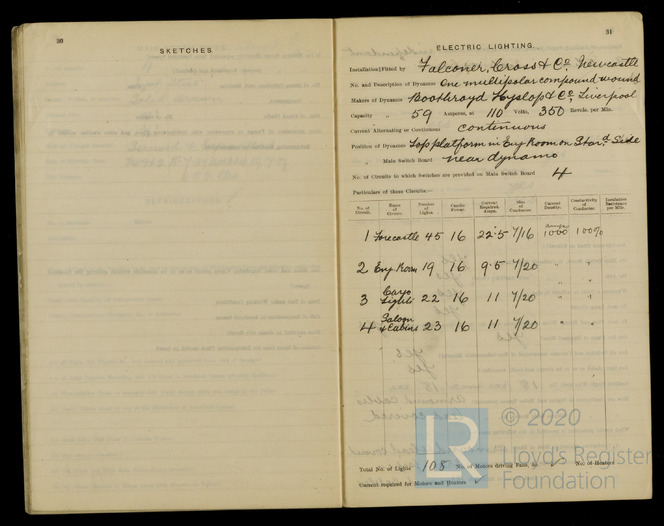 30
SKETCHES.
31
ELECTRIC LIGHTING.
Installation Fitted by Falconer, Cross & Co. Newcastle
No. and Description of Dynamos One multipolar compound wound
Makers of Dynamos Boothroyd Hyslop & Co. Liverpool
Capacity „ 59 Amperes, at 110 Volts, 350 Revols. per Min.
Current Alternating or Continuous continuous
Position of Dynamos Top platform in Eng Room on Star'd Side
„ Main Switch Board near dynamo
No. of Circuits to which Switches are provided on Main Switch Board 4
Particulars of these Circuits:—
No. of Circuit. Name of Circuit. Number of Lights. Candle Power. Current Required. Amps. Size of Conductor. Current Density. Conductivity of Conductor. Insulation Resistance per Mile.
1 Forecastle 45 16 22·5 7/16 1000 100%
2 Eng Room 19 16 9·5 7/20 „ „
3 Cargo Lights 22 16 11 7/20 „ „
4 Saloon & Cabins 23 16 11 7/20 „ „
Total No. of Lights 108 No. of Motors driving Fans, &c. ✓ No. of Heaters
Current required for Motors and Heaters ✓
© 2020
LR
Lloyd's Register
Foundation